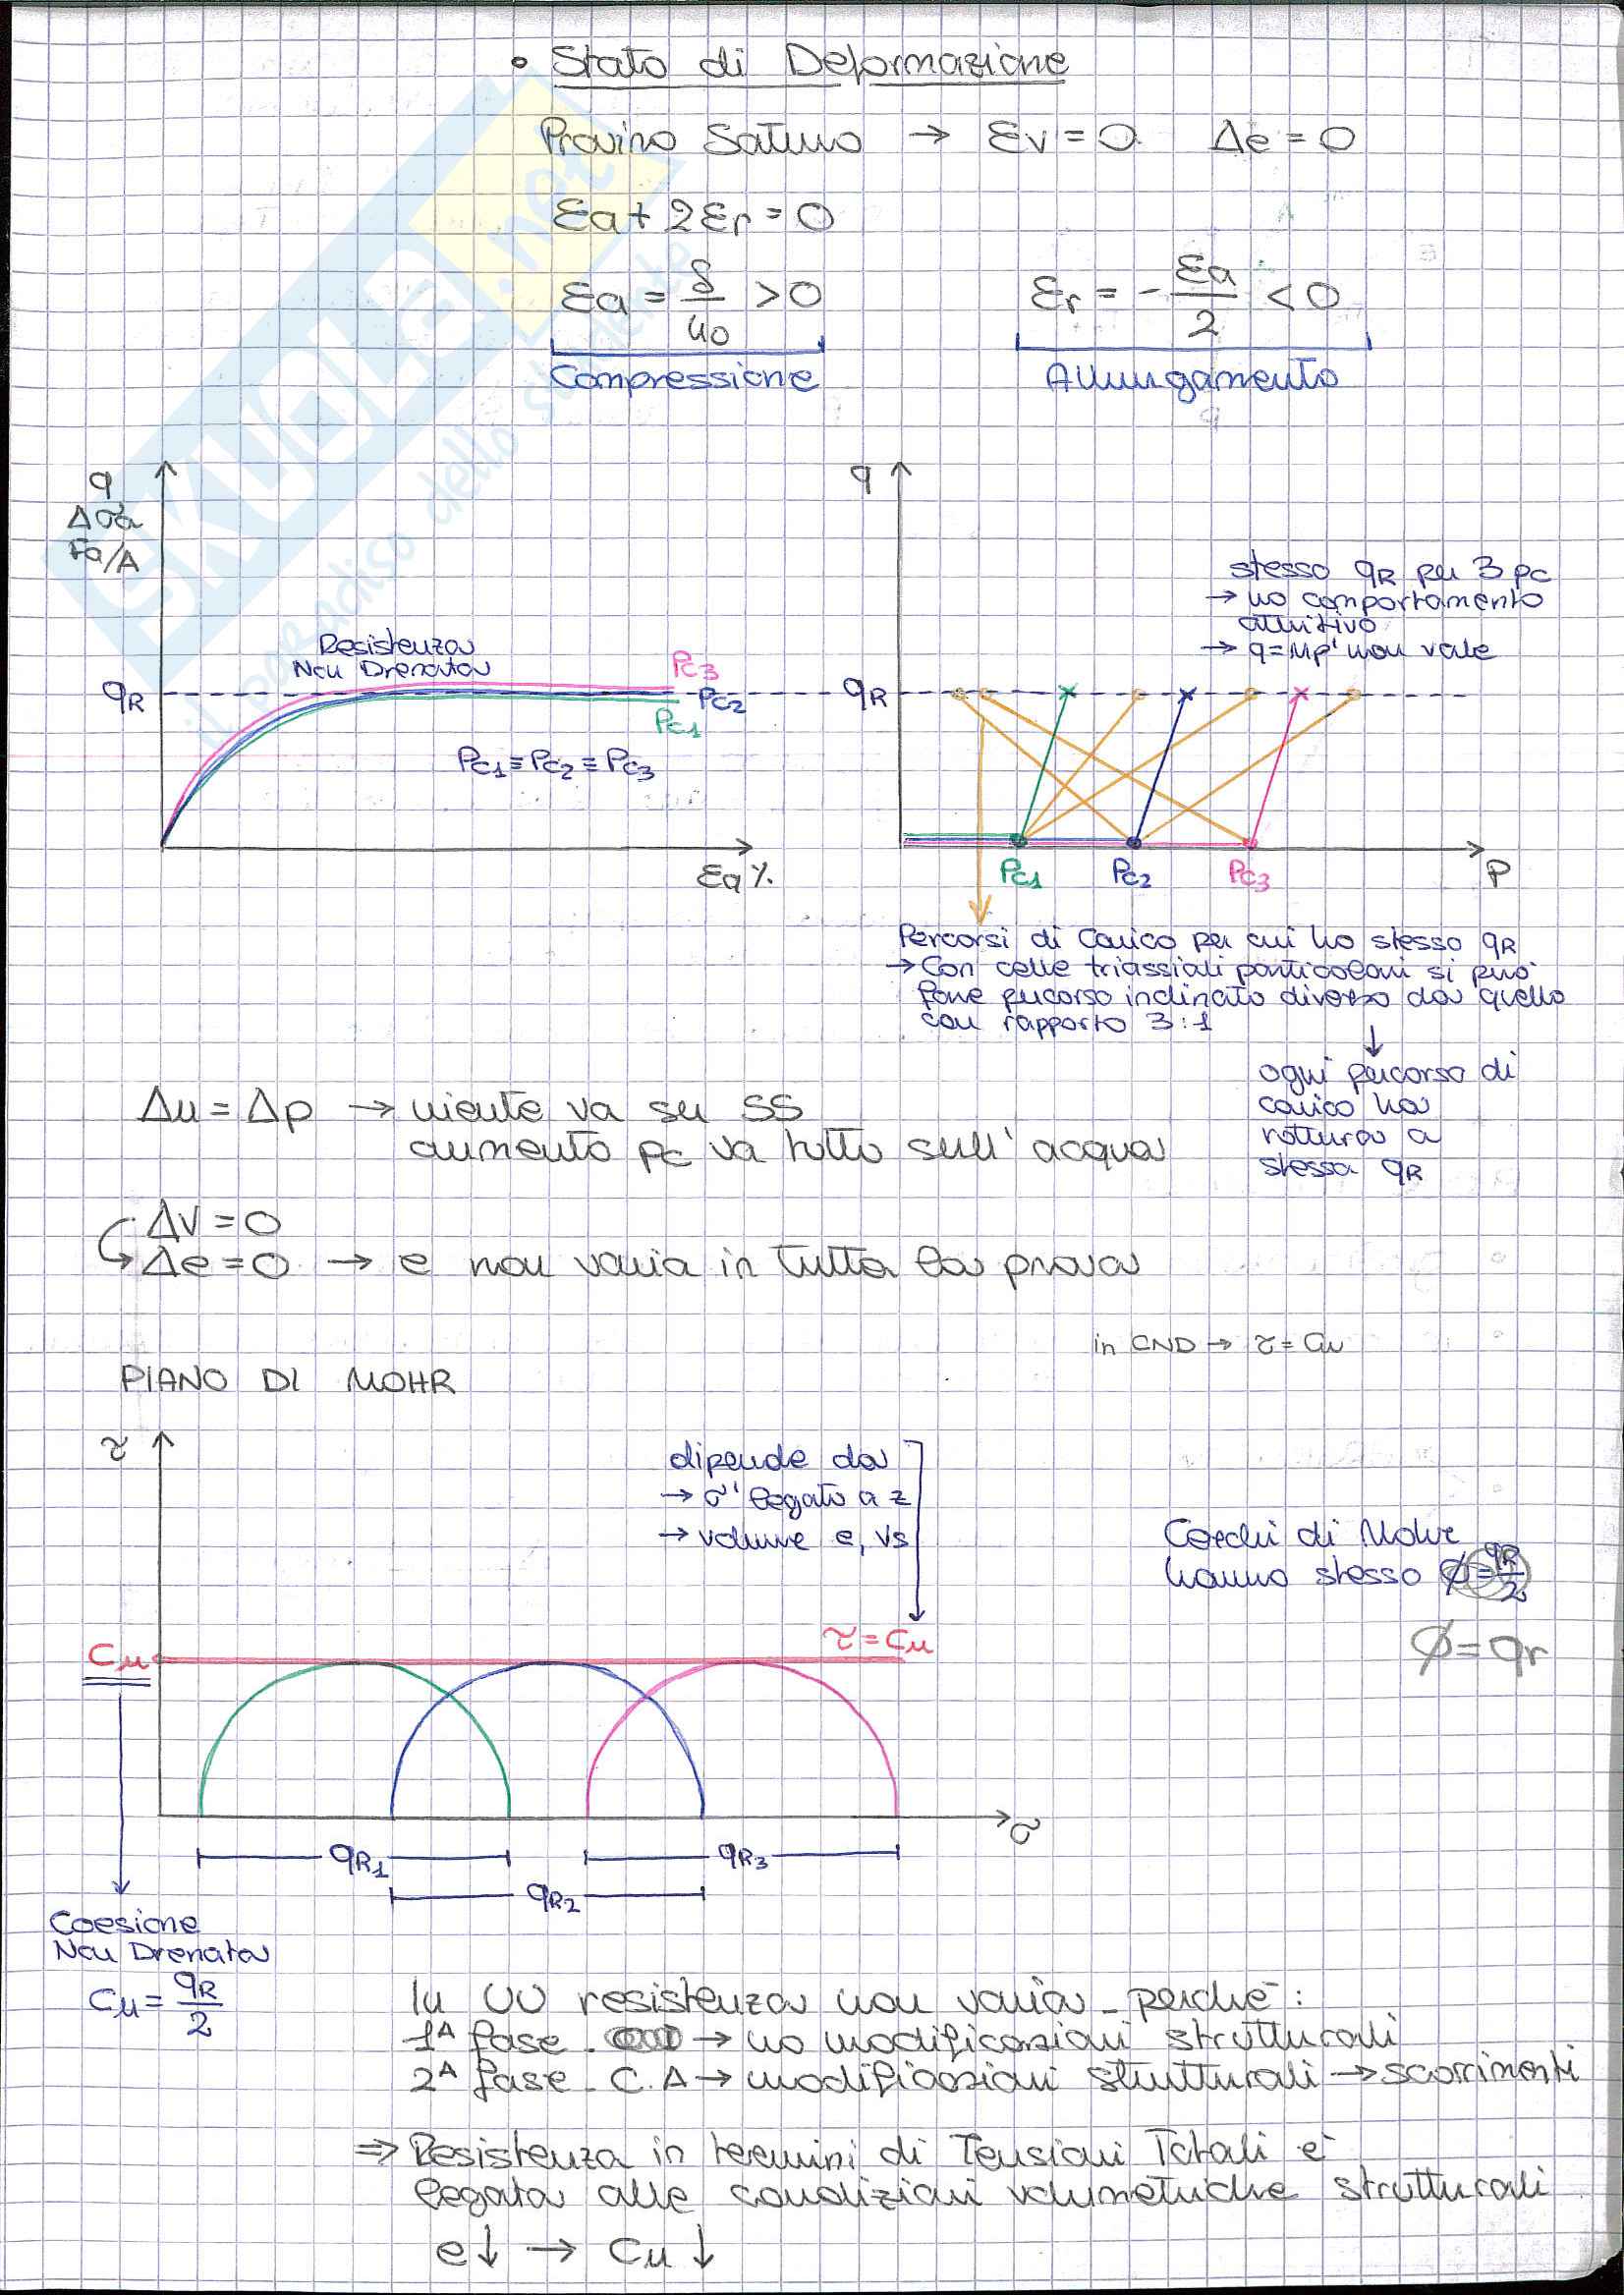 • Stato di Deformazione
Provino Saturo → εv = 0 Δe = 0
εa + 2εr = 0
εa = δ/H0 > 0 εr = - εa/2 < 0
Compressione Allungamento
q
Δσa
Fa/A
Resistenza
Non Drenata
qR
Pc3
Pc2
Pc1
Pc1 ≡ Pc2 ≡ Pc3
εa %
q
stesso qR per 3 pc
→ no comportamento
attritivo
→ q=Mp' non vale
qR
Pc1 Pc2 Pc3 P
Percorsi di Carico per cui ho stesso qR
→ Con celle triassiali particolari si può
fare percorso inclinato diverso da quello
con rapporto 3:1
↓
ogni percorso di
carico ha
rottura a
stessa qR
Δu = Δp → niente va su SS
aumento pc va tutto sull'acqua
ΔV = 0
Δe = 0 → e non varia in tutta la prova
in CND → τ = Cu
PIANO DI MOHR
τ
dipende da
→ σ' legato a z
→ volume e, Vs
Cerchi di Mohr
hanno stesso ϕ = qR/2
ϕ = qr
Cu
τ = Cu
σ
qR1 qR3
qR2
Coesione
Non Drenata
Cu = qR/2
In UU resistenza non varia perché:
1ª fase → no modificazioni strutturali
2ª fase C.A → modificazioni strutturali → scorrimenti
⇒ Resistenza in termini di Tensioni Totali è
legata alle condizioni volumetriche strutturali
e↓ → Cu↓
SKUOLA.net
il paradiso dello studente